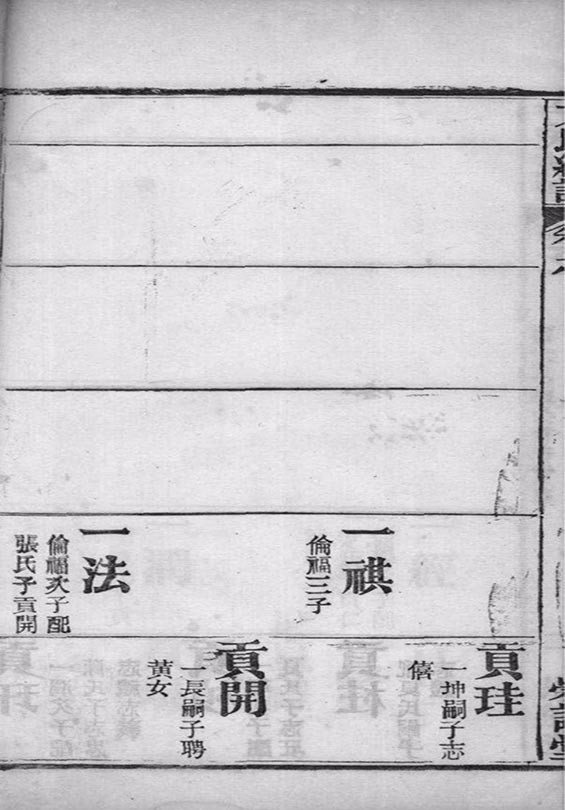 一祺
倫福三子
一法
倫福次子配
張氏子貢開
貢珪
一坤嗣子志
僖
貢開
一長嗣子聘
黃女